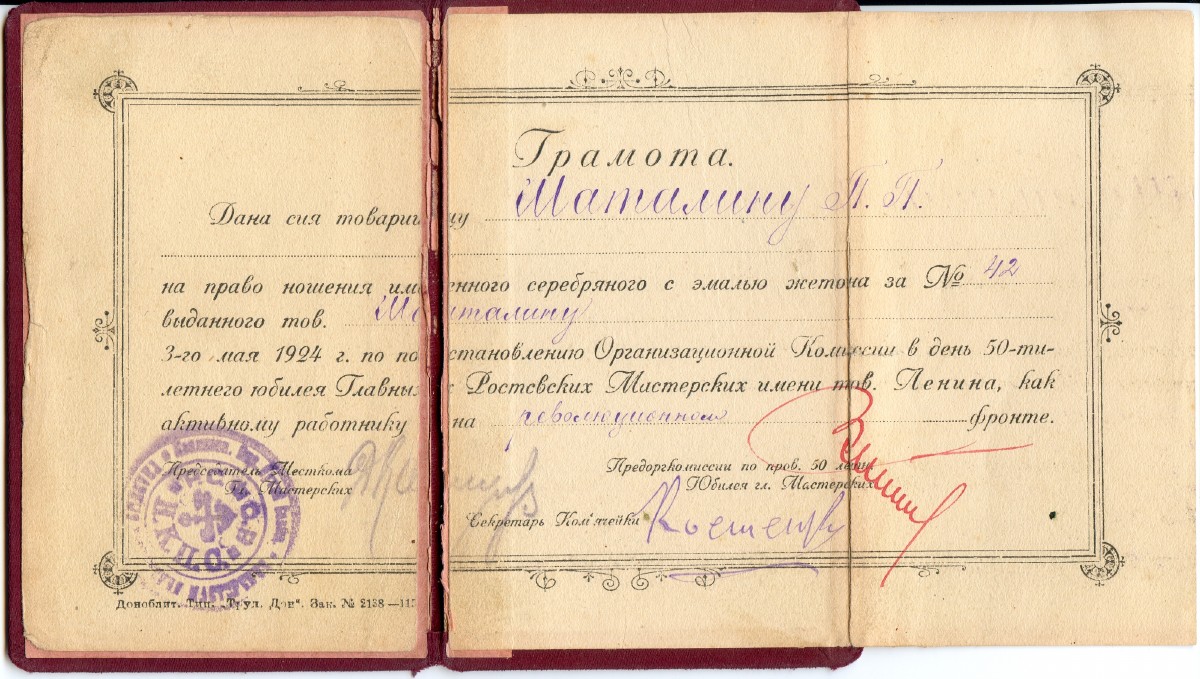 Грамота.
Дана сия товарищу Маталину П. П.
на право ношения име енного серебряного с эмалью жетона за № 42
выданного тов. Маталину
3-го мая 1924 г. по по становлению Организационной Комиссии в день 50-ти-
летнего юбилея Главных Ростовских Мастерских имени тов. Ленина, как
активному работнику на революционном фронте.
Председатель Месткома
Гл. Мастерских
Предоргкомиссии по пров. 50 летн.
Юбилея гл. Мастерских
Секретарь Ком'ячейки
Р.С.Ф.С.Р.
Н.К.П.С.
Доноблит. Тип. „Труд. Дон“. Зак. № 2138—115